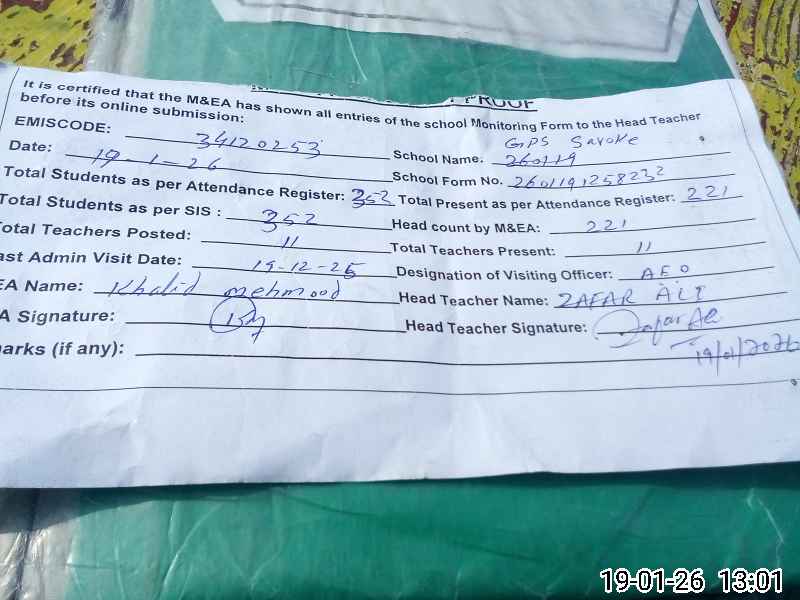 PROOF
It is certified that the M&EA has shown all entries of the school Monitoring Form to the Head Teacher
before its online submission:
EMISCODE: 34120253
GPS Saroke
School Name: 260119
Date: 19-1-26
School Form No. 2601191258232
Total Students as per Attendance Register: 352
Total Present as per Attendance Register: 221
Total Students as per SIS : 352
Head count by M&EA: 221
Total Teachers Posted: 11
Total Teachers Present: 11
ast Admin Visit Date: 19-12-25
Designation of Visiting Officer: AEO
EA Name: Khalid mehmood
Head Teacher Name: ZAFAR ALI
A Signature:
Head Teacher Signature: Zafar Ali
19/01/2026
arks (if any):
19-01-26 13:01